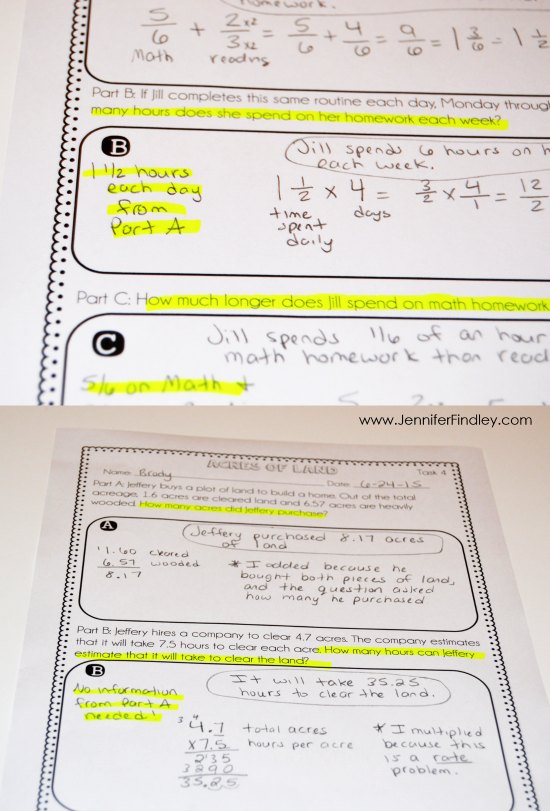 homework.
5/6 + 2 x2/3 x2 = 5/6 + 4/6 = 9/6 = 1 3/6 = 1 1/2
Math reading
Part B: If Jill completes this same routine each day, Monday
many hours does she spend on her homework each week?
B
Jill spends 6 hours on
each week.
1 1/2 hours
each day
from
Part A
1 1/2 x 4 = 3/2 x 4/1 = 12/2
time days
spent
daily
Part C: How much longer does Jill spend on math homework
C
Jill spends 1/6 of an hour
math homework than
5/6 on Math +
www.JenniferFindley.com
ACRES OF LAND
Task 4
Name Brady Date 6-24-15
Part A: Jeffery buys a plot of land to build a home. Out of the total
acreage, 1.6 acres are cleared land and 6.57 acres are heavily
wooded. How many acres did Jeffery purchase?
A
Jeffery purchased 8.17 acres
of land
1 1.60 cleared
6.57 wooded
8.17
* I added because he
bought both pieces of land,
and the question asked
how many he purchased.
Part B: Jeffery hires a company to clear 4.7 acres. The company estimates
that it will take 7.5 hours to clear each acre. How many hours can Jeffery
estimate that it will take to clear the land?
B
It will take 35.25
hours to clear the land.
No information
from Part A
needed!
3 4
4.7 total acres
x7.5 hours per acre
235
3290
35.25
* I multiplied
because this
is a rate
problem.